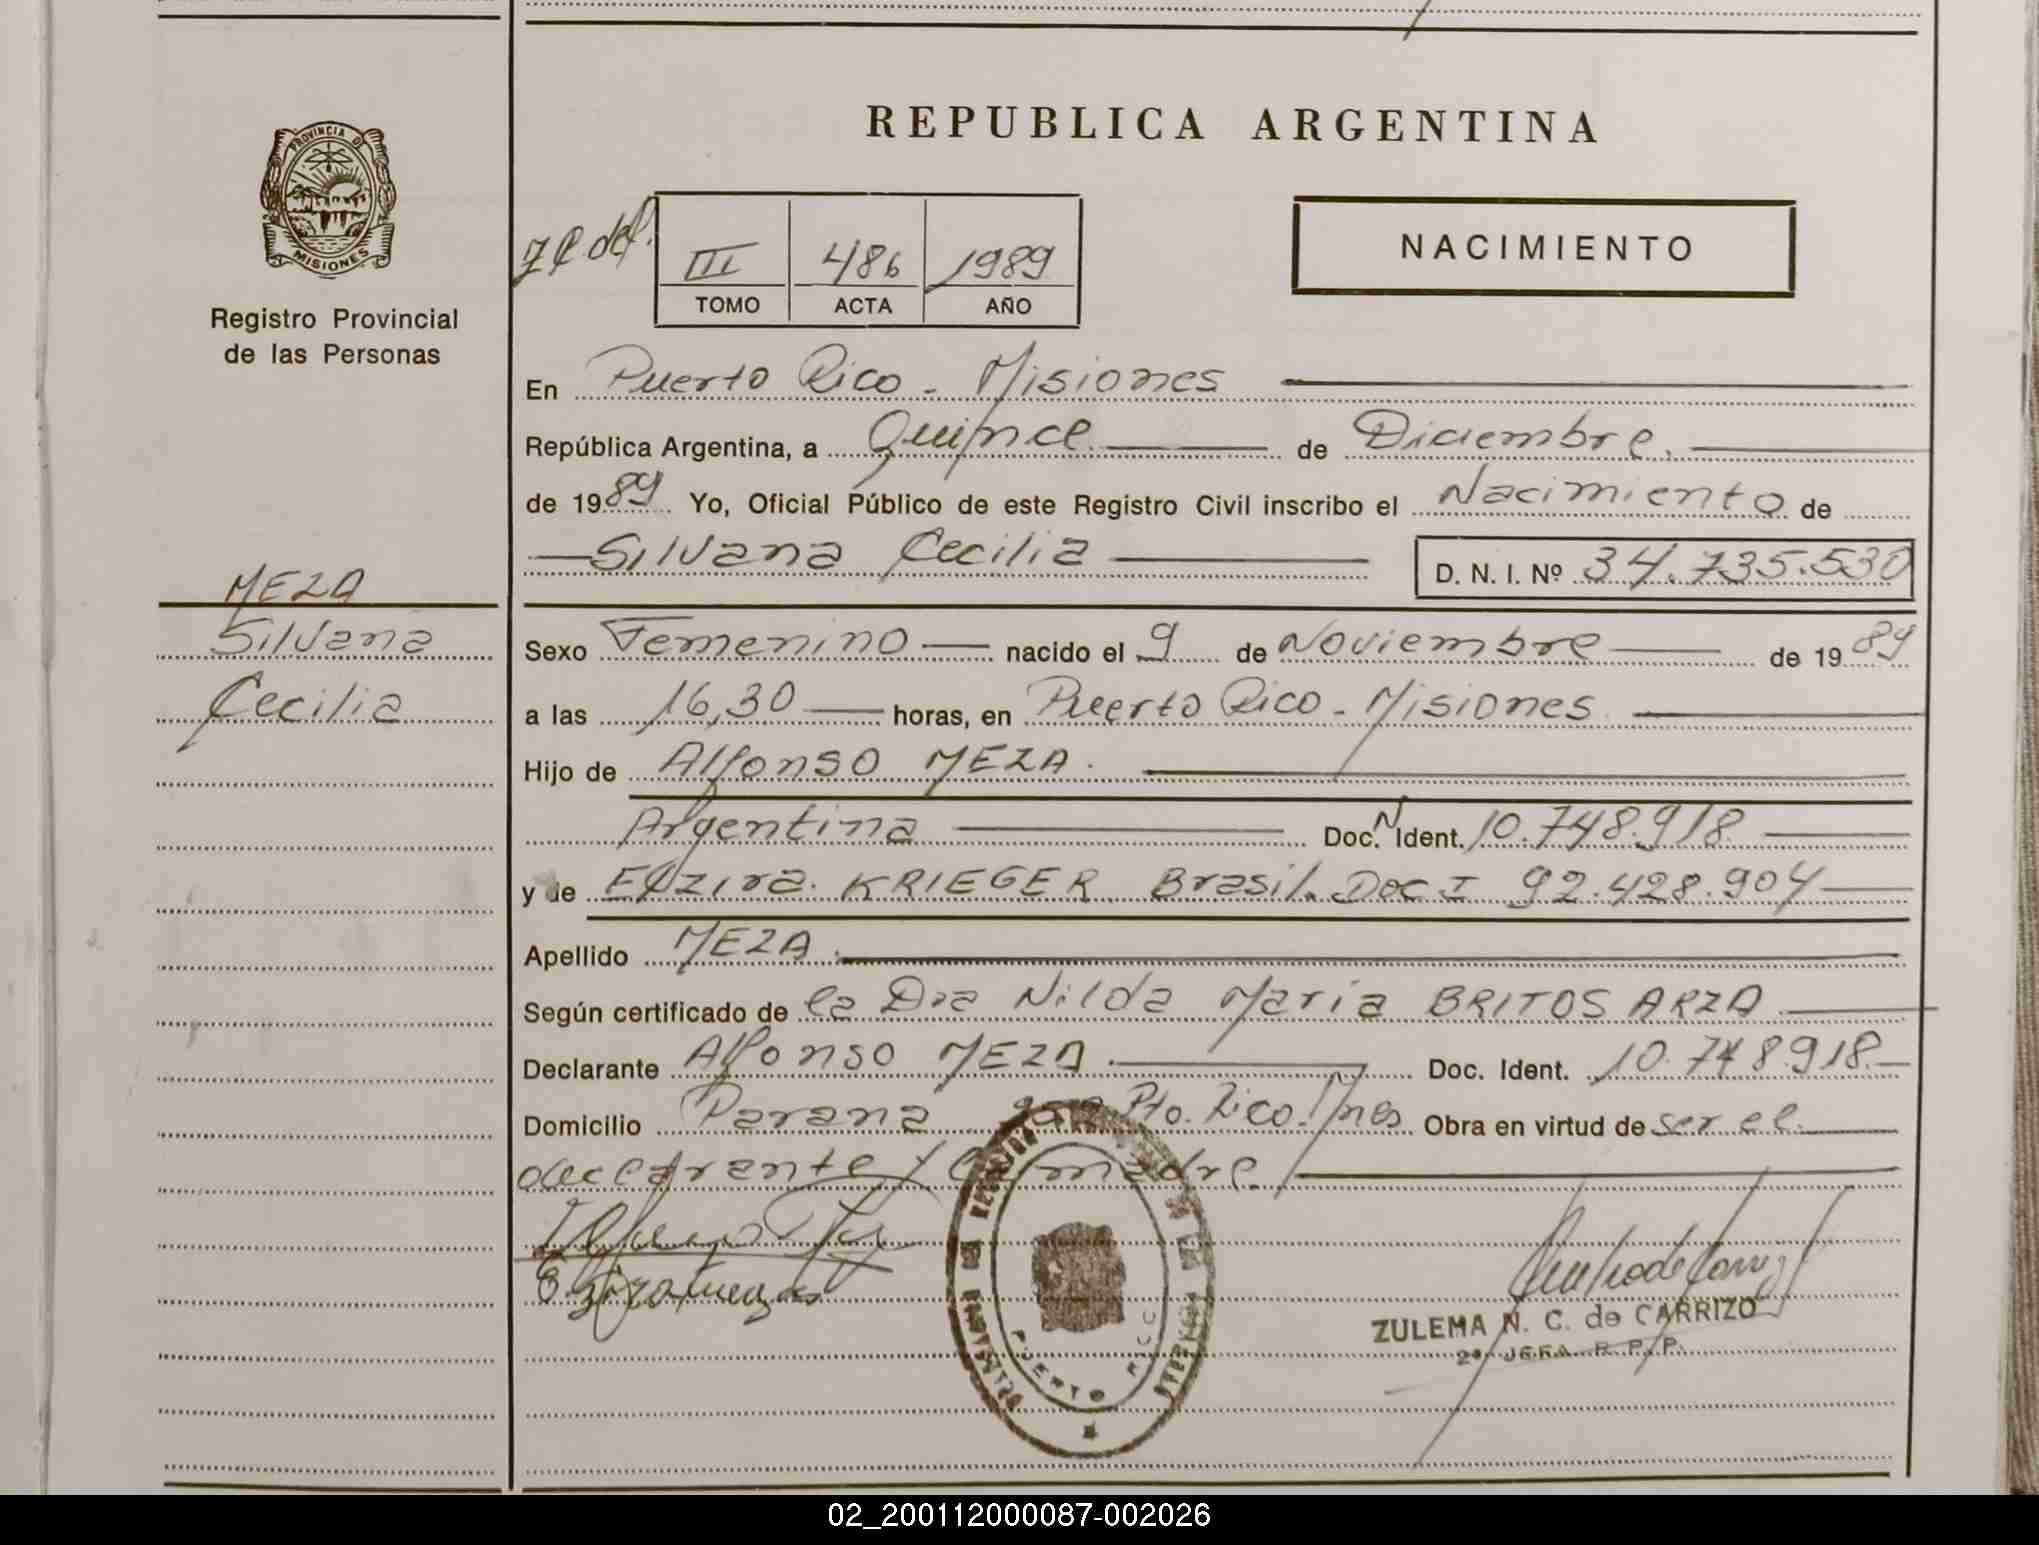 REPUBLICA ARGENTINA
PROVINCIA DE
MISIONES
Registro Provincial
de las Personas
III 486 1989
TOMO ACTA AÑO
NACIMIENTO
En Puerto Rico - Misiones
República Argentina, a Quince de Diciembre.
de 1989 Yo, Oficial Público de este Registro Civil inscribo el Nacimiento de
Silvana Cecilia D. N. I. Nº 34.735.530
MEZA
Silvana
Cecilia
Sexo Femenino nacido el 9 de Noviembre de 1989
a las 16,30 horas, en Puerto Rico - Misiones
Hijo de Alfonso MEZA.
Argentina Doc. N Ident. 10.748.918
y de Elzira. KRIEGER Brasil. Doc I 92.428.904
Apellido MEZA.
Según certificado de la Dra Nilda María BRITOS ARZA
Declarante Alfonso MEZA. Doc. Ident. 10.748.918.
Domicilio Parana Pto. Rico. Mnes Obra en virtud de ser el
declarante y la madre.
ZULEMA N. C. de CARRIZO
2ª JEFA R. P. P.
PUERTO RICO
02_200112000087-002026